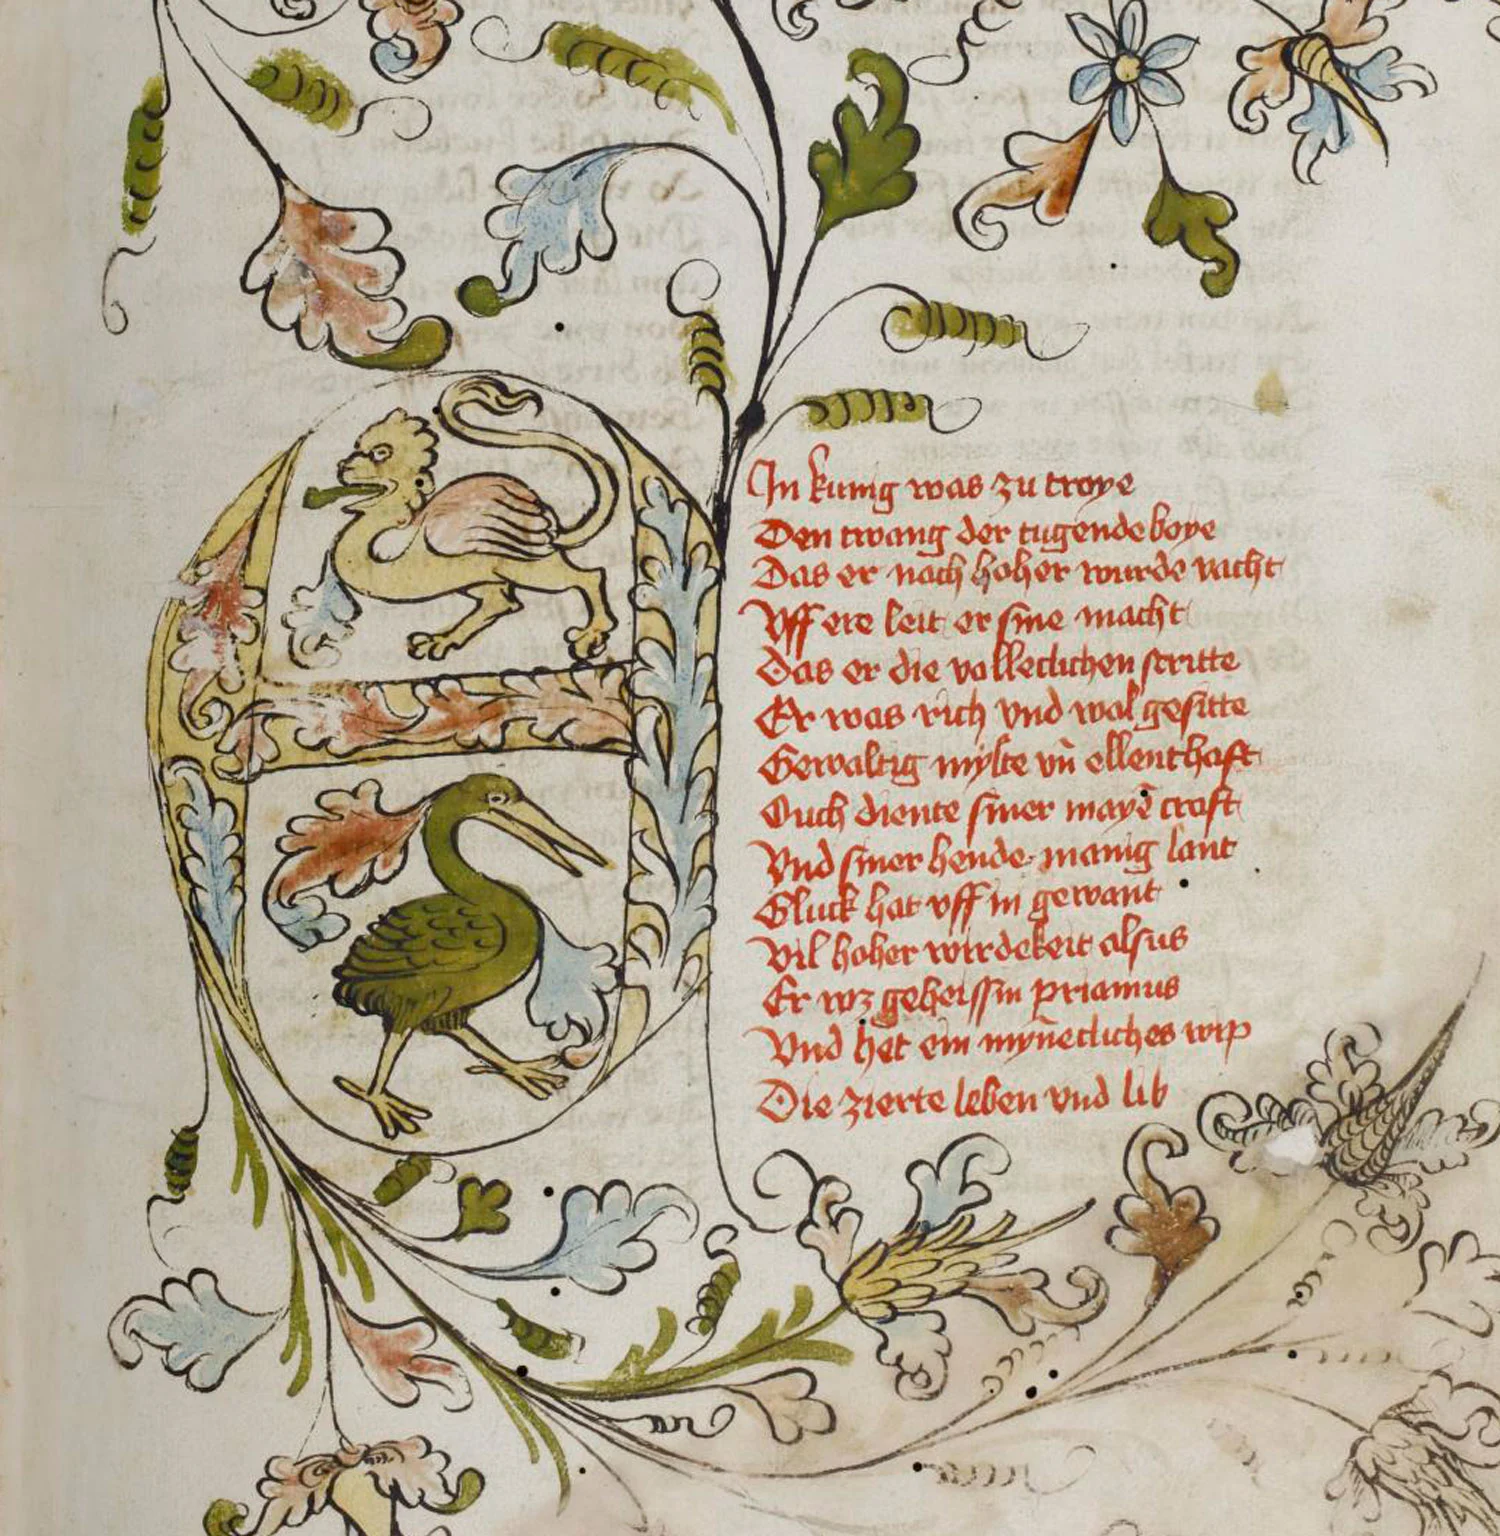 In kunig was zu troye
Den twang der tugende boye
Das er noch hoher wurde vacht
Vff ere leit er sine macht
Das er die volleclichen scritte
Er was rich vnd wol gesitte
Gewaltig mylte vn̄ ellenthaft
Ouch diente siner mayē craft
Vnd siner hende manig lant
Gluck hat vff in gewant
Vil hoher wirdekeit alsus
Er wz geheissin priamus
Vnd het ein myn̄ecliches wip
Die zierte leben vnd lib